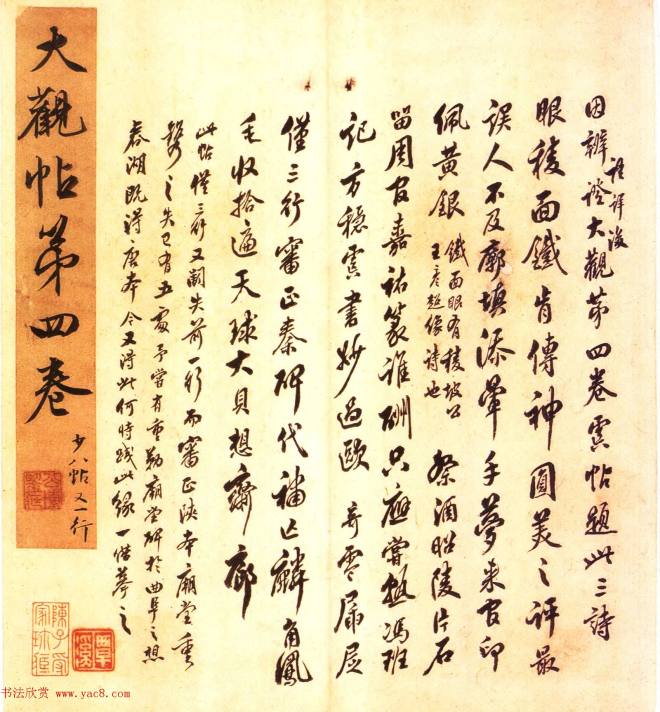 因辨證大觀第四卷虞帖題此三詩
詳後
眼稜面鐵肯傳神圓美之評最
誤人不及廓填添暈手夢来官印
佩黃銀
鐵面眼有稜坡公
王彥超像詩也
祭酒昭陵片石
留周官嘉祐篆誰酬只應嘗熟馮班
記方穩虞書妙過歐奇零屭屓
僅三行審正秦碑代補亡麟角鳳
毛收拾遍天球大貝想齋廊
此帖僅三行又闕失前一行而審正陝本廟堂重
之失已有五處予嘗有重勒廟堂碑於曲阜之想
春湖既得唐本今又得此何時踐此緣一借摹之
大觀帖第四卷
少八帖又一行
陳子受家珍藏
覃溪
书法欣赏 www.yac8.com